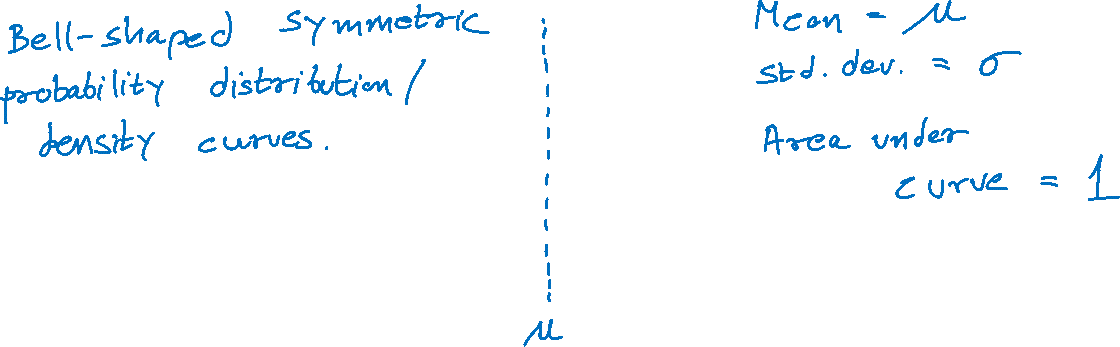 Bell-shaped symmetric
probability distribution/
density curves.
Mean = μ
std. dev. = σ
Area under
curve = 1
μ